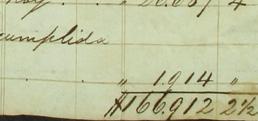 " 20.637 4
cumplida
" 1.914 "
$166.912 2½